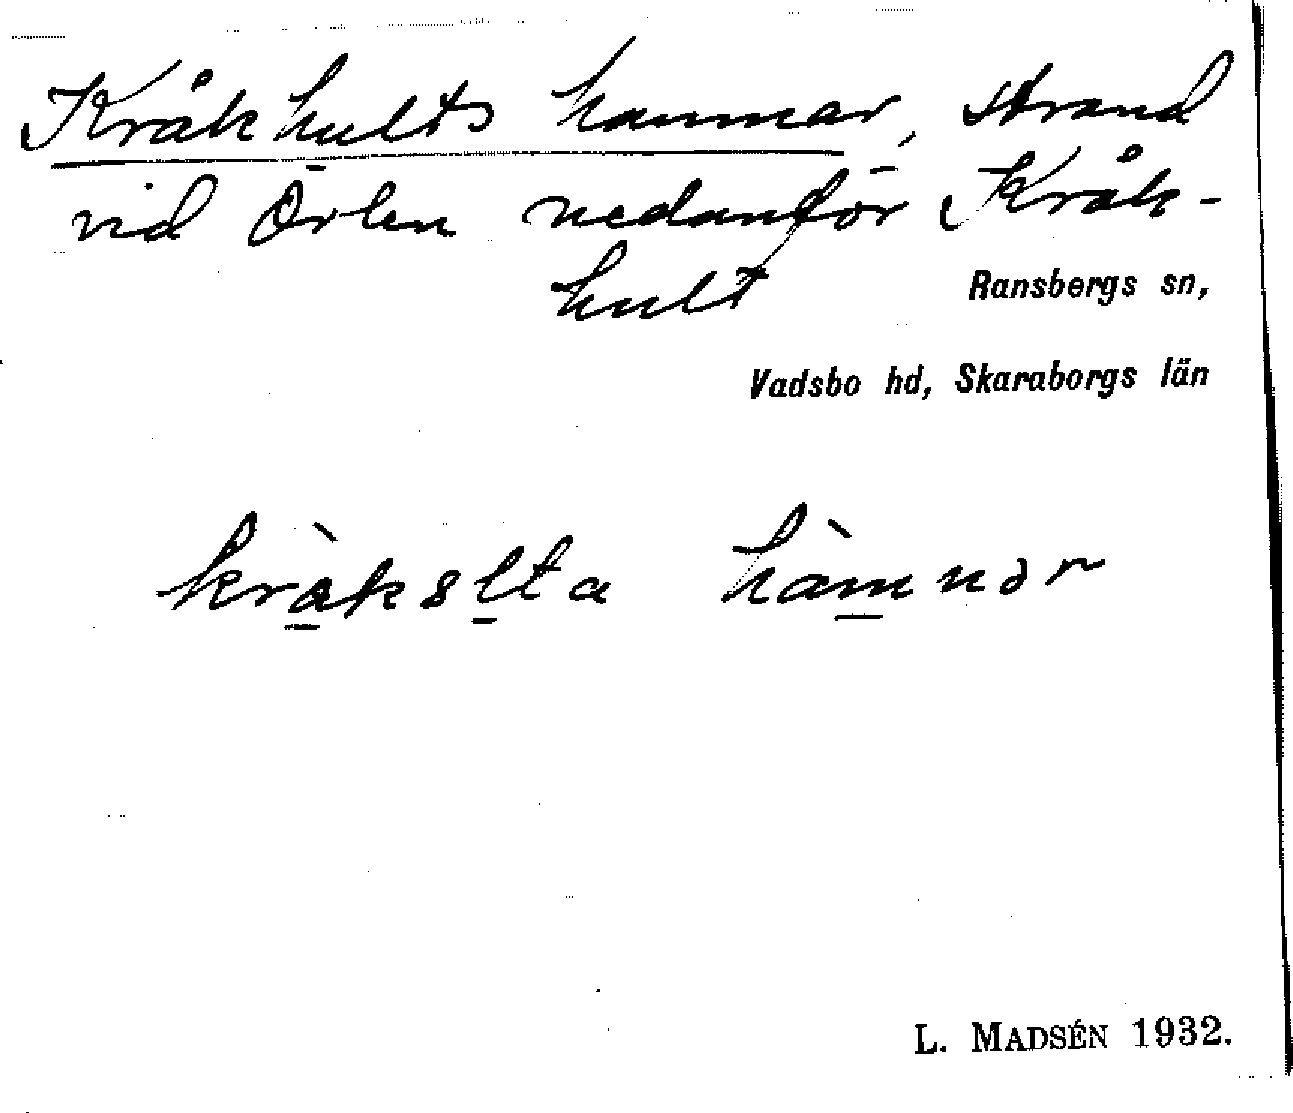 Kråkhults hammar, strand
vid Örlen nedanför Kråk-
hult
Ransbergs sn,
Vadsbo hd, Skaraborgs län
L. MADSÉN 1932.